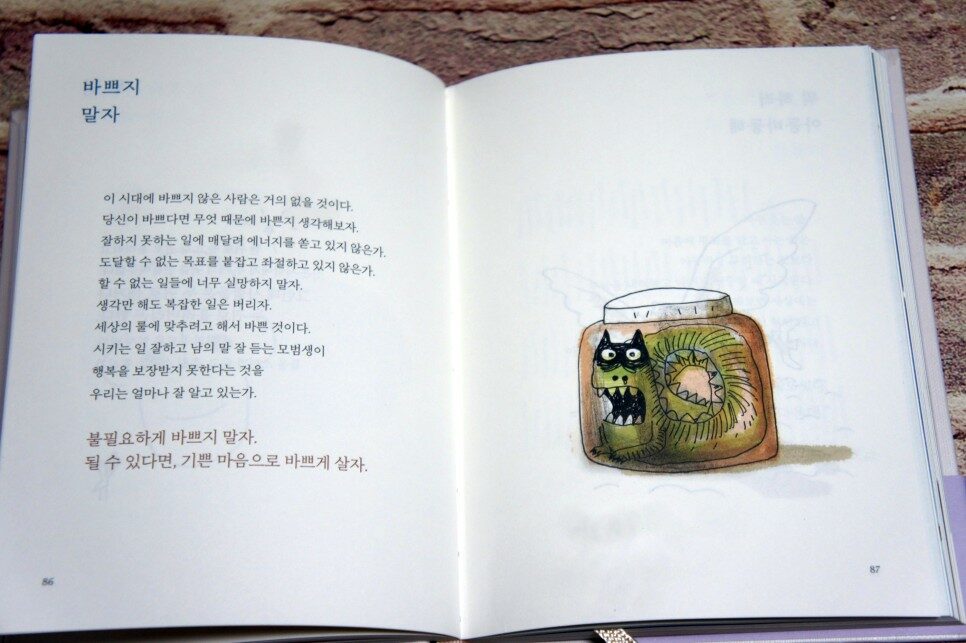 바쁘지
말자
이 시대에 바쁘지 않은 사람은 거의 없을 것이다.
당신이 바쁘다면 무엇 때문에 바쁜지 생각해보자.
잘하지 못하는 일에 매달려 에너지를 쏟고 있지 않은가.
도달할 수 없는 목표를 붙잡고 좌절하고 있지 않은가.
할 수 없는 일들에 너무 실망하지 말자.
생각만 해도 복잡한 일은 버리자.
세상의 룰에 맞추려고 해서 바쁜 것이다.
시키는 일 잘하고 남의 말 잘 듣는 모범생이
행복을 보장받지 못한다는 것을
우리는 얼마나 잘 알고 있는가.
불필요하게 바쁘지 말자.
될 수 있다면, 기쁜 마음으로 바쁘게 살자.
86
87